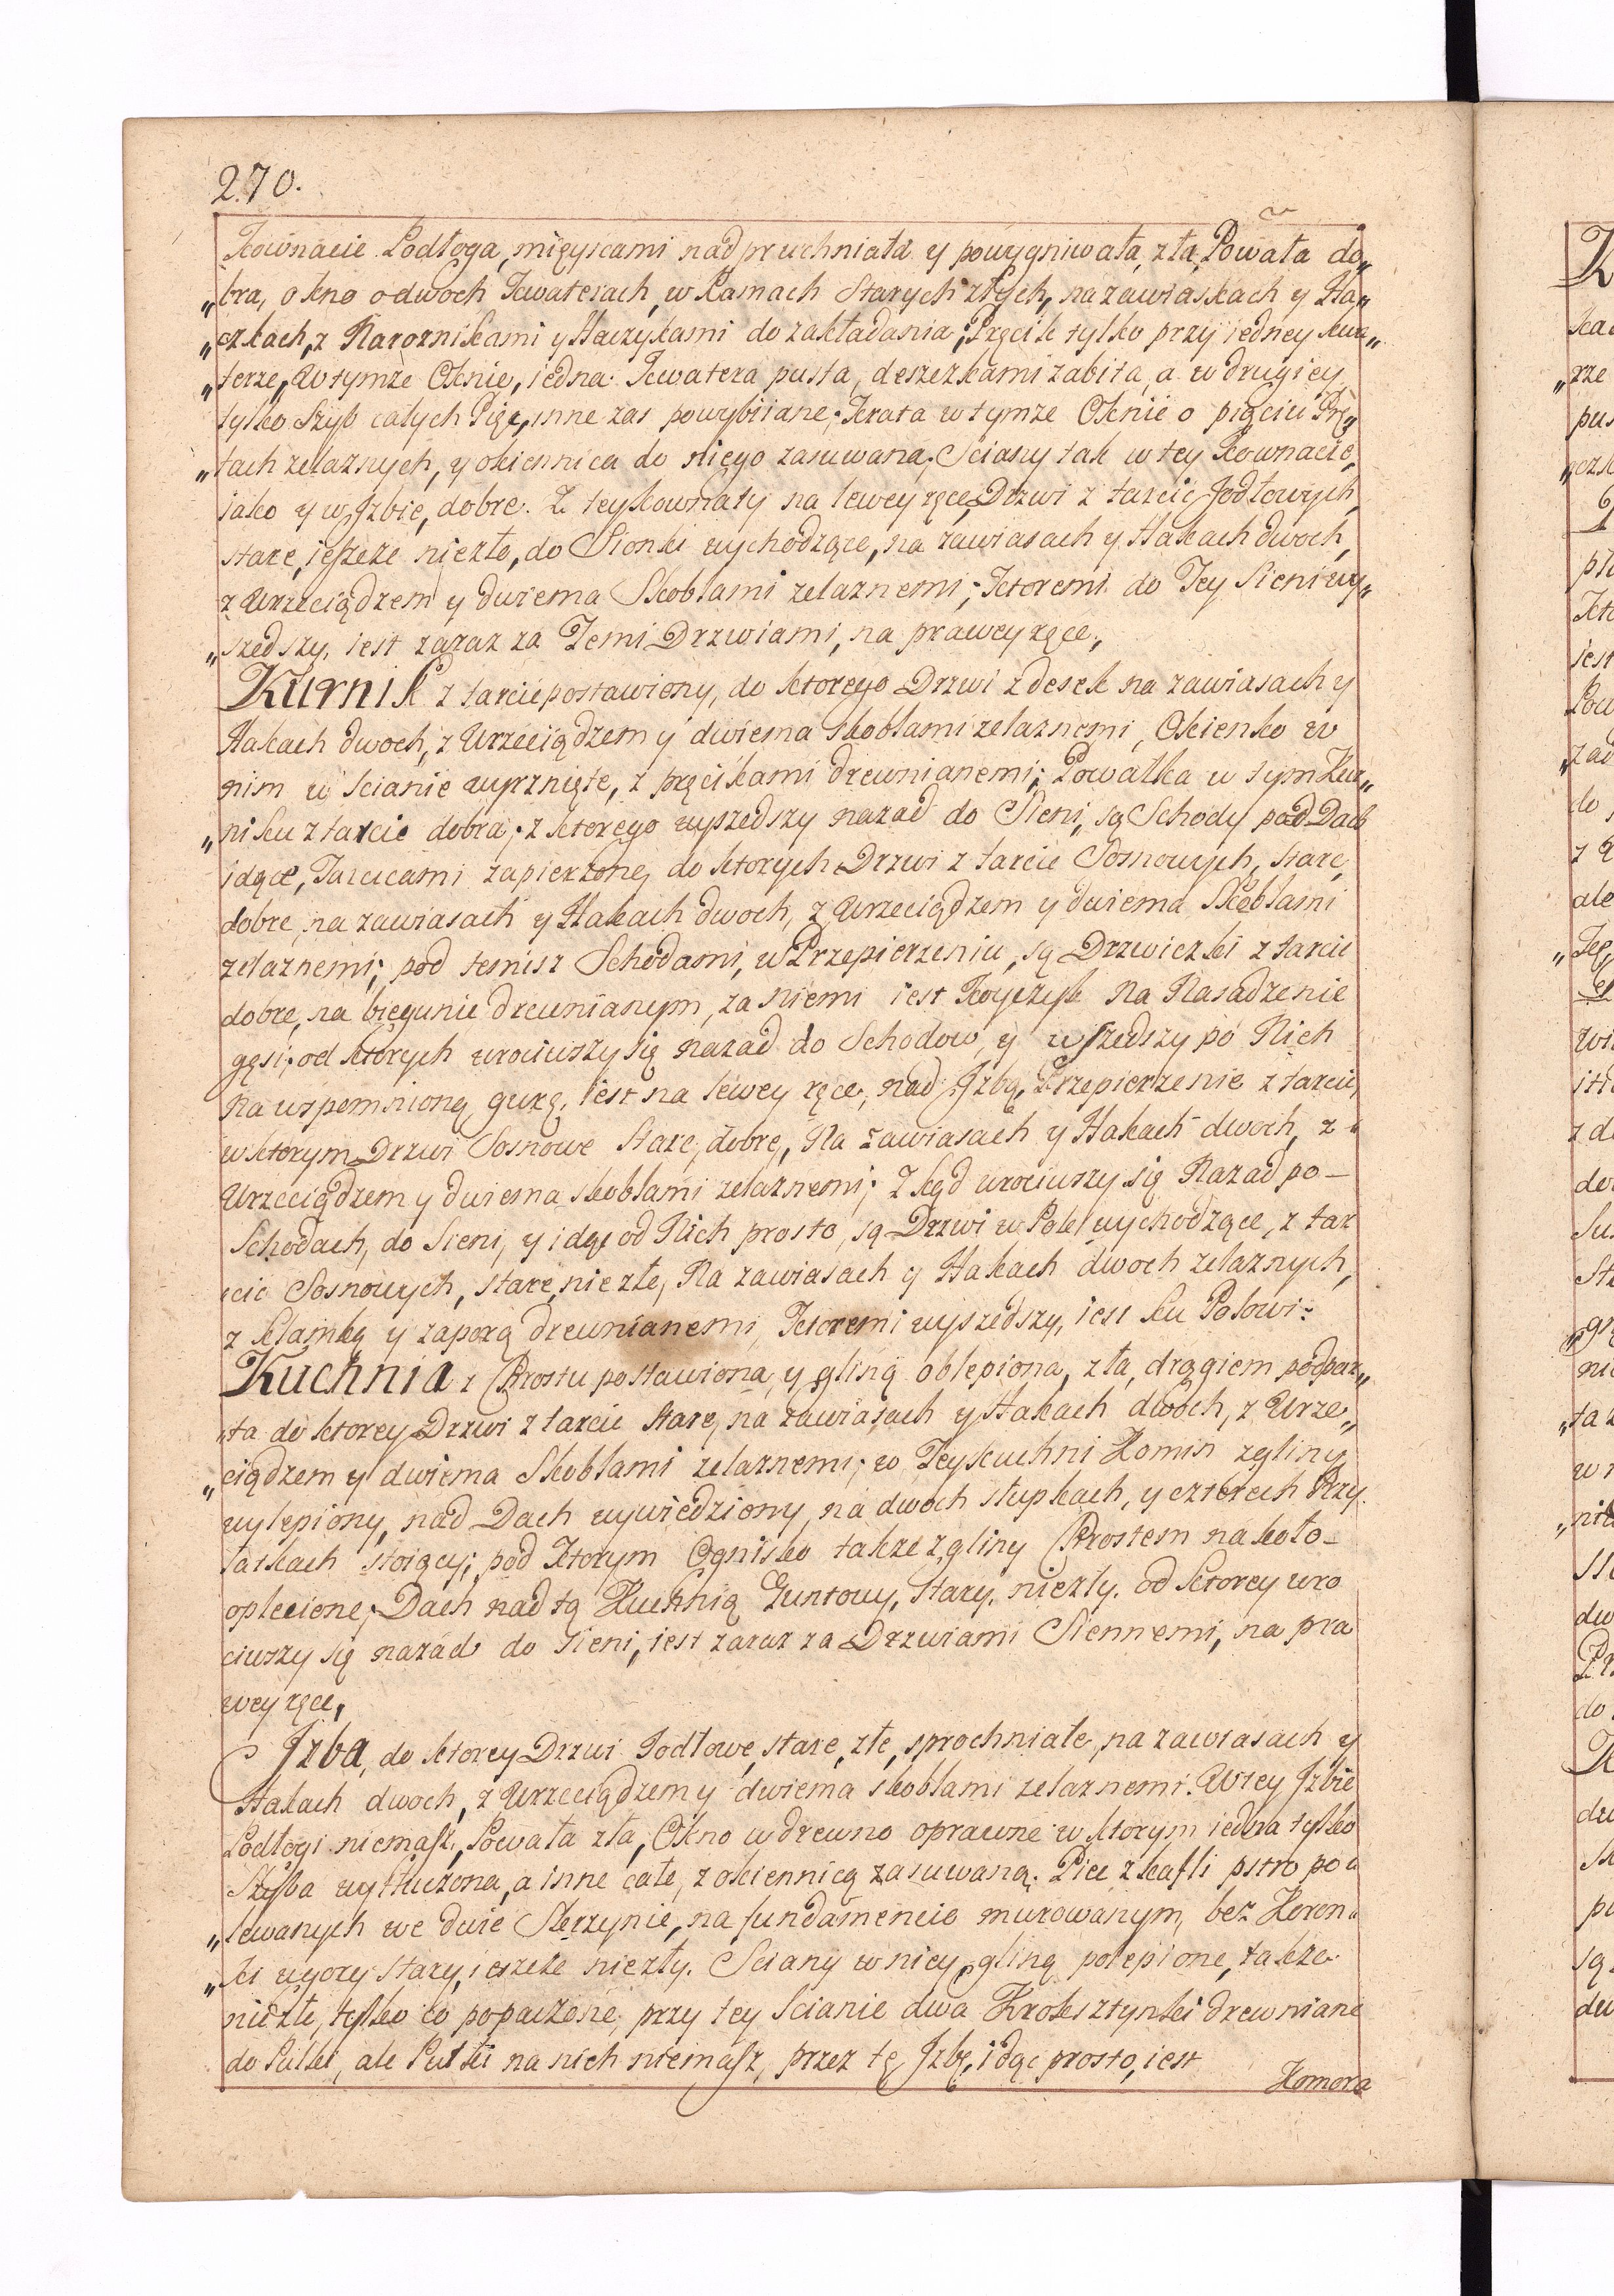 270.
Kownacie Podłoga, mięyscami nadpruchniała y powygniwała, zła, Powała do„
„bra, okno odwoch kwaterach, w Ramach Starych złych, na zawiaskach y Ha„
„czkach, z Naroznikami y Haczykami do zakładania, Pręcik tylko przy iedney kwa„
„terze, W tymże Oknie, iedna Kwatera pusta, deszczkami zabita, a w drugiey
tylko Szyb całych Pięc, inne zas powybiiane; Krata w tymze Oknie o pięciu Prę„
„tach zelaznych, y okiennica do niego zasuwana; Sciany tak w tey Kownacie,
iako y w Jzbie, dobre. Z teykownaty na lewey ręce, Drzwi z tarcic Jodłowych,
stare, ieszcze niezło, do Sionki wychodzące, na zawiasach y Hakach dwoch,
z Wrzeciądzem y dwiema Skoblami zelaznemi; Ktoremi do Tey Sieni wy„
„szedszy, iest zaraz za Temi Drzwiami, na prawey ręce,
Kurnik z tarcic postawiony, do ktorego Drzwi z desek na zawiasach y
Hakach dwoch, z Wrzeciądzem y dwiema skoblami zelaznemi, Okienko w
nim w scianie wyrznięte, z pręcikami drewnianemi; Powałka w tym Kur„
„niku z tarcic dobra; z ktorego wyszedszy nazad do Sieni, są Schody pod Dach
idące, Tarcicami zapierzone, do ktorych Drzwi z tarcic Sosnowych, stare,
dobre, na zawiasach y Hakach dwoch, z Wrzeciądzem y dwiema Skoblami
zelaznemi; pod temisz Schodami, w Przepierzeniu, są Drzwiczki z tarcic
dobre, na biegunie drewnianym, za niemi iest Koyczyk na Nasadzenie
gęsi; od ktorych wrociwszy się nazad do Schodow, y wszedszy po Nich
Na wspomnioną gurę, iest na lewey ręce, nad Jzbą, Przepierzenie z tarcic,
w ktorym Drzwi Sosnowe Stare, dobre, Na zawiasach y Hakach dwoch, z
Wrzeciądzem y dwiema skoblami zelaznemi; Z kąd wrociwszy się Nazad po-
Schodach, do Sieni, y idąc od Nich prosto, są Drzwi w Pole wychodzące, z tar
cic Sosnowych, stare, niezłe, Na zawiasach y Hakach dwoch zelaznych,
z Klamką y zaporą drewnianemi, Ktoremi wyszedszy, iest ku Polowi:
Kuchnia z Chrostu postawiona, y gliną oblepiona, zła, drągiem podpar„
„ta do ktorey Drzwi z tarcic stare, na zawiasach y Hakach dwoch, z Wrze„
„ciądzem y dwiema Skoblami zelaznemi; w Teykuchni Komin zgliny
wylepiony, nad Dach wywiedziony, na dwoch słupkach, y czterech Przy
łatkach stoiący; pod Ktorym Ognisko takze zgliny Chrostem nakoło-
oplecione; Dach nad tą Kuchnią Guntowy, stary, niezły. od ktorey wro
ciwszy się nazad do sieni, iest zaraz za Drzwiami Siennemi, na pra
wey ręce,
Jzba, do ktorey Drzwi Jodłowe, stare, złe, sprochniałe, na zawiasach y
Hakach dwoch, z Wrzeciądzem y dwiema skoblami zelaznemi. W tey Jzbie
Podłogi niemasz, Powała zła, Okno w drewno oprawne w ktorym iedna tylko
Szyba wytłuczona, a inne całe, z okiennicą zasuwaną. Piec z kafli pstro po„
„lewanych we dwie Skrzynie, na fundamencie murowanym, bez Koron„
„ki ugory stary, ieszcze niezły. Sciany w niey gliną polepione, takze
niezłe, tylko co popaczone, przy tey scianie dwa Kroksztynki drewniane
do Pulki, ale Pulki na nich niemasz, przez tę Jzbę, idąc prosto, iest
Komora